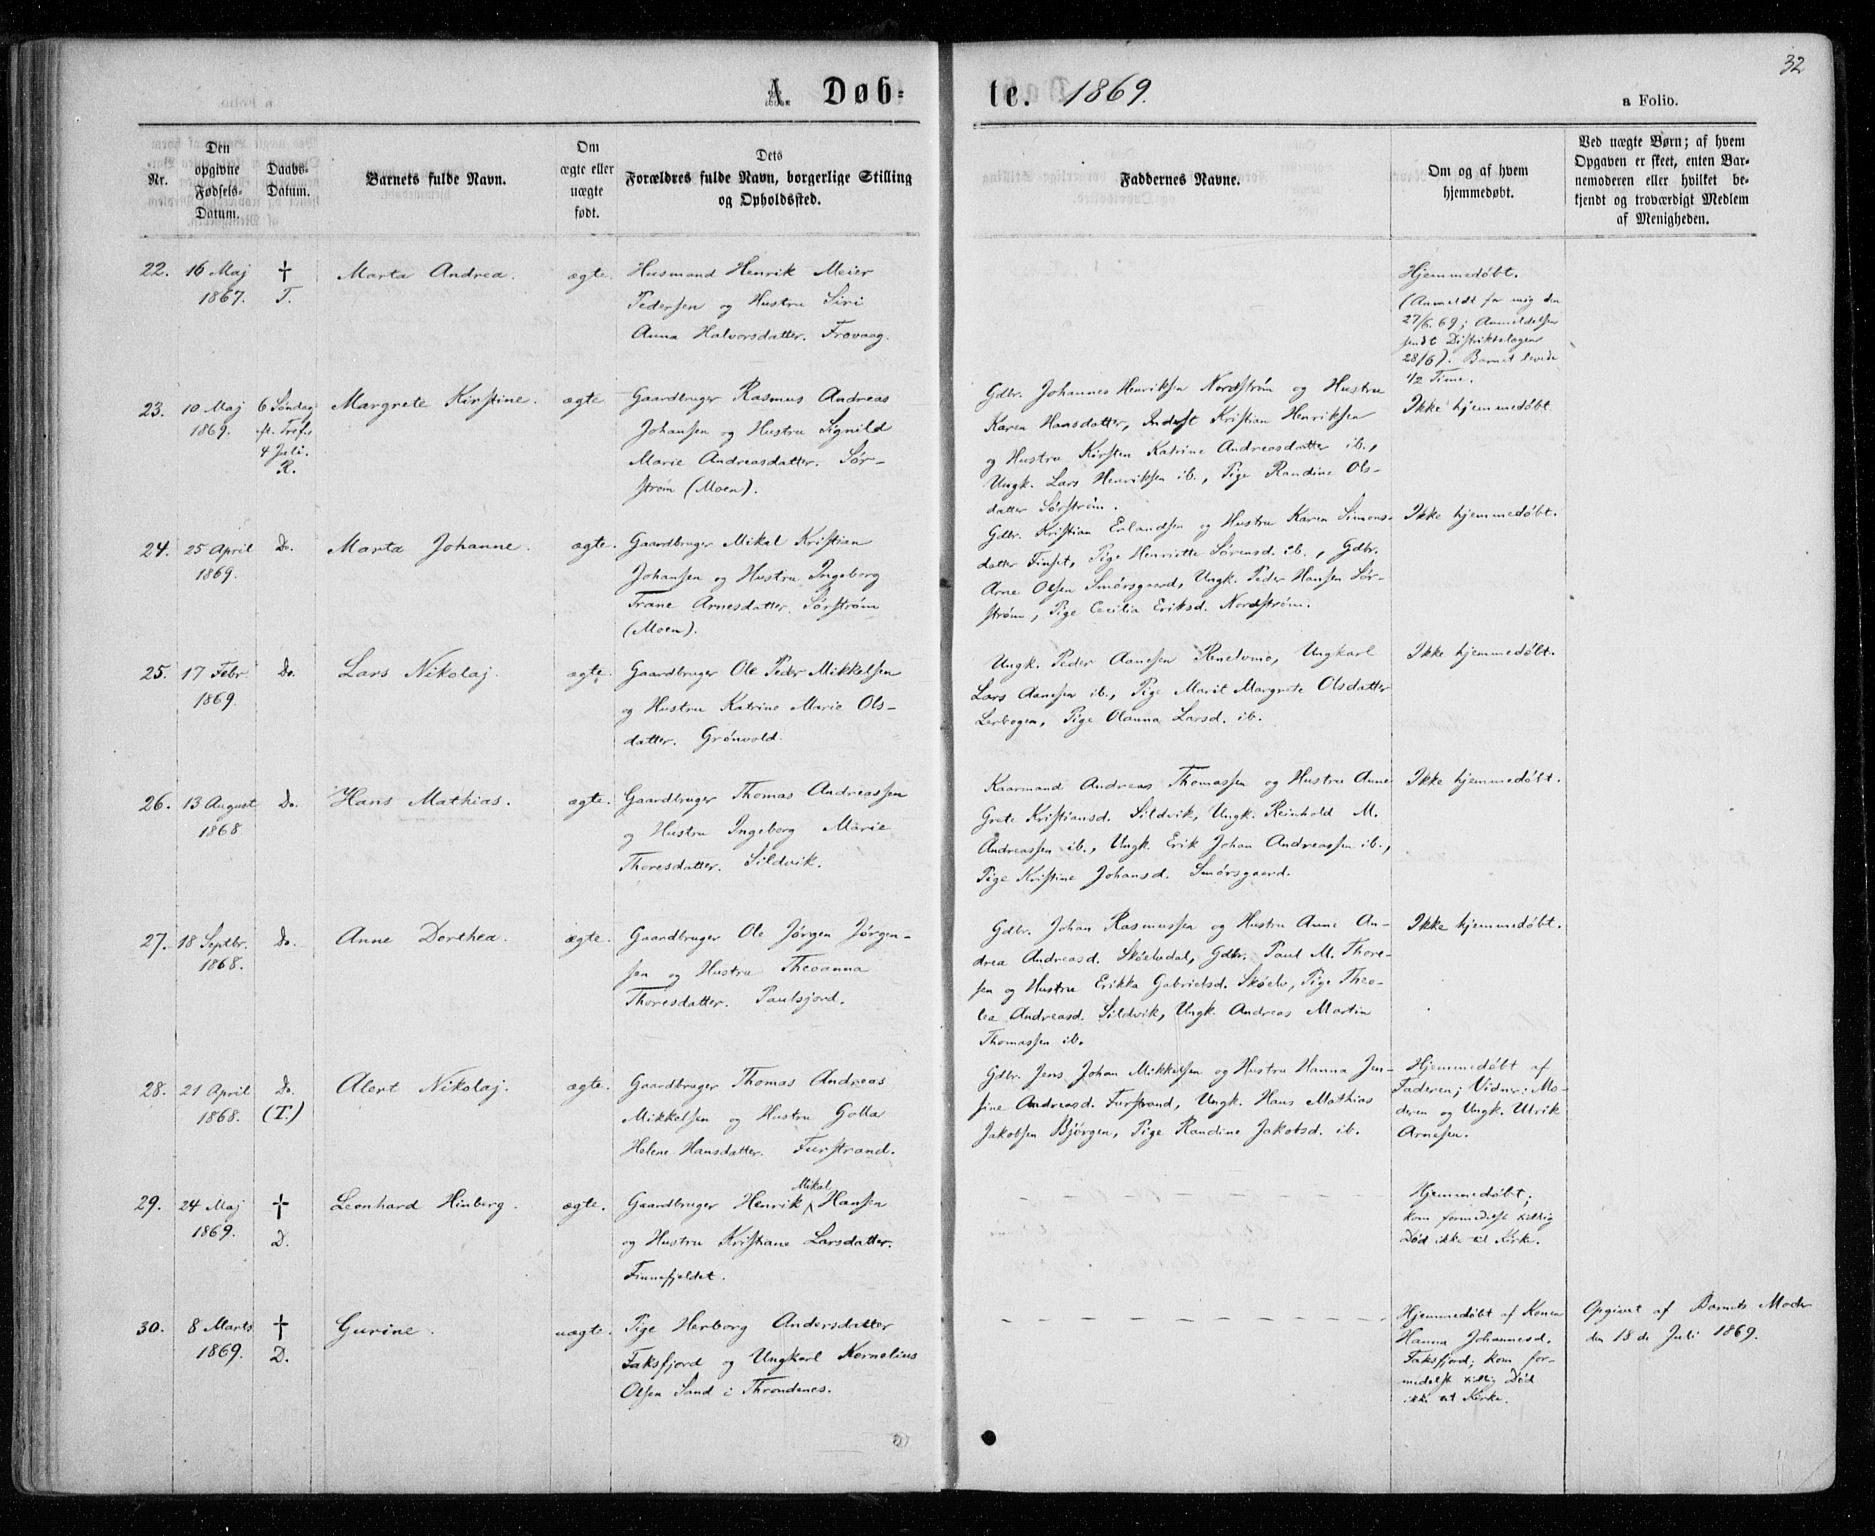 32
A. Døb-
te. 1869.
a Folio.
Nr.
Den
opgivne
Fødsels-
Datum.
Daabs-
Datum.
Barnets fulde Navn.
Om
ægte eller
uægte
født.
Dets
Forældres fulde Navn, borgerlige Stilling
og Opholdssted.
Faddernes Navne.
Om og af hvem
hjemmedøbt.
Ved uægte Børn; af hvem
Opgaven er skeet, enten Bar-
nemoderen eller hvilket be-
kjendt og troværdigt Medlem
af Menigheden.
22.
16 Maj
1867.
†
T.
Marta Andrea.
ægte.
Husmand Henrik Meier
Pedersen og Hustru Siri
Anna Halvorsdatter. Frovaag.
Hjemmedøbt.
(Anmeldt for mig den
27/6. 69; Anmeldelsen
sendt Distriktslægen
28/6). Barnet levede
1/2 Time.
23.
10 Maj
1869.
6 Søndag
ft. Tref.
4 Juli.
R.
Margrete Kirstine.
ægte
Gaardbruger Rasmus Andreas
Johansen og Hustru Signild
Marie Andreasdatter. Sør-
strøm (Moen).
Gdbr. Johannes Henriksen Nordstrøm og Hustru
Karen Hansdatter, Inderst Kristian Henriksen
og Hustru Kirsten Katrine Andreasdatter ib.,
Ungk. Lars Henriksen ib., Pige Randine Ols-
datter Sørstrøm.
Ikke hjemmedøbt.
24.
25 April
1869.
Do.
Marta Johanne.
ægte.
Gaardbruger Mikal Kristian
Johansen og Hustru Ingeborg
Trane Arnesdatter. Sørstrøm
(Moen).
Gdbr. Kristian Erlandsen og Hustru Karen Simons-
datter Finset, Pige Henriette Sørensd. ib., Gdbr.
Arne Olsen Smørsgaard, Ungk. Peder Hansen Sør-
strøm, Pige Cecilia Eriksd. Nordstrøm.
Ikke hjemmedøbt.
25.
17 Febr.
1869.
Do.
Lars Nikolaj.
ægte.
Gaardbruger Ole Peder Mikkelsen
og Hustru Katrine Marie Ols-
datter. Grønvold.
Ungk. Peder Aanesen Renelvmo, Ungkarl
Lars Aanesen ib., Pige Marit Margrete Olsdatter
Lerbogen, Pige Olanna Larsd. ib.
Ikke hjemmedøbt.
26.
13 August
1868
Do.
Hans Mathias.
ægte.
Gaardbruger Thomas Andreassen
og Hustru Ingeborg Marie
Thoresdatter. Sildvik.
Kaarmand Andreas Thomassen og Hustru Anne
Grete Kristiansd. Sildvik, Ungk. Reinhold M.
Andreassen ib., Ungk. Erik Johan Andreassen ib.,
Pige Kristine Johansd. Smørsgaard.
Ikke hjemmedøbt.
27.
18 Septbr.
1868.
Do.
Anne Dorthea.
ægte.
Gaardbruger Ole Jørgen Jørgen-
sen og Hustru Theoanna
Thoresdatter. Paulsjord.
Gdbr. Johan Rasmussen og Hustru Anne An-
drea Andreasd. Skøelvdal, Gdbr. Paul M. Thore-
sen og Hustru Erikka Gabrielsd. Skøelv, Pige Theo-
lea Andreasd. Sildvik, Ungk. Andreas Martin
Thomassen ib.
Ikke hjemmedøbt.
28.
21 April
1868.
Do.
(T.)
Alert Nikolaj.
ægte.
Gaardbruger Thomas Andreas
Mikkelsen og Hustru Golla
Helene Hansdatter. Furstrand.
Gdbr. Jens Johan Mikkelsen og Hustru Hanna Jen-
sine Andreasd. Furstrand, Ungk. Hans Mathias
Jakobsen Bjørgen, Pige Randine Jakobsd. ib.
Hjemmedøbt af
Faderen; Vidner: Mo-
deren og Ungk. Ulrik
Arnesen.
29.
24 Maj
1869.
†
D.
Leonhard Hinberg.
ægte.
Gaardbruger Henrik Mikal Hansen
og Hustru Kristiane Larsdatter.
Finnefjeldet.
Hjemmedøbt;
kom formedelst tidlig
Død ikke til Kirke.
30.
8 Marts
1869.
†
D.
Gurine.
uægte.
Pige Herborg Andersdatter
Faksfjord og Ungkarl Kornelius
Olsen Sand i Throndenes.
Hjemmedøbt af Konen
Hanna Johannesd.
Faksfjord; kom for-
medelst tidlig Død
ikke til Kirke.
Opgivet af Barnets Moder
den 18de Juli 1869.